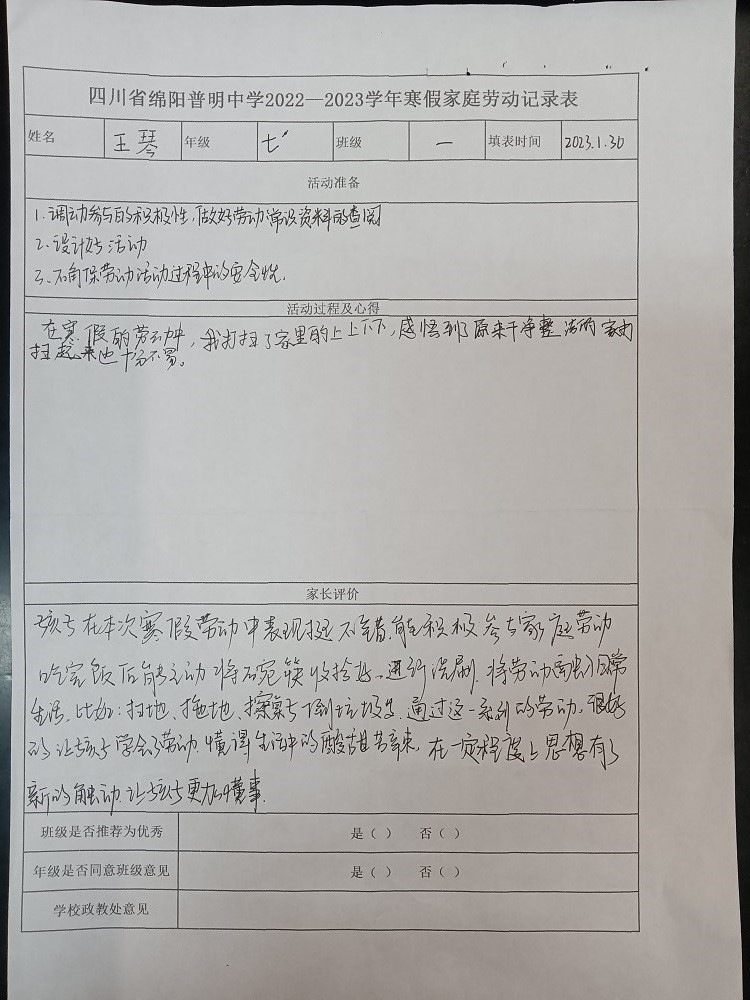 四川省绵阳普明中学2022—2023学年寒假家庭劳动记录表
姓名 王琴 年级 七 班级 一 填表时间 2023.1.30
活动准备
1.调动参与的积极性,做好劳动常识资料的查阅
2.设计好活动
3.确保劳动活动过程中的安全性.
活动过程及心得
在寒假的劳动中,我打扫了家里的上上下下,感悟到了原来干净整洁的家打
扫起来也十分不易。
家长评价
孩子在本次寒假劳动中表现挺不错,能积极参与家庭劳动
吃完饭后能主动将碗筷收拾好.进行洗刷.将劳动融入日常
生活.比如:扫地、拖地、擦桌子倒垃圾等.通过这一系列的劳动.很好
的让孩子学会了劳动.懂得生活中的酸甜苦辣.在一定程度上思想有了
新的触动.让孩子更加懂事.
班级是否推荐为优秀 是( ) 否( )
年级是否同意班级意见 是( ) 否( )
学校政教处意见